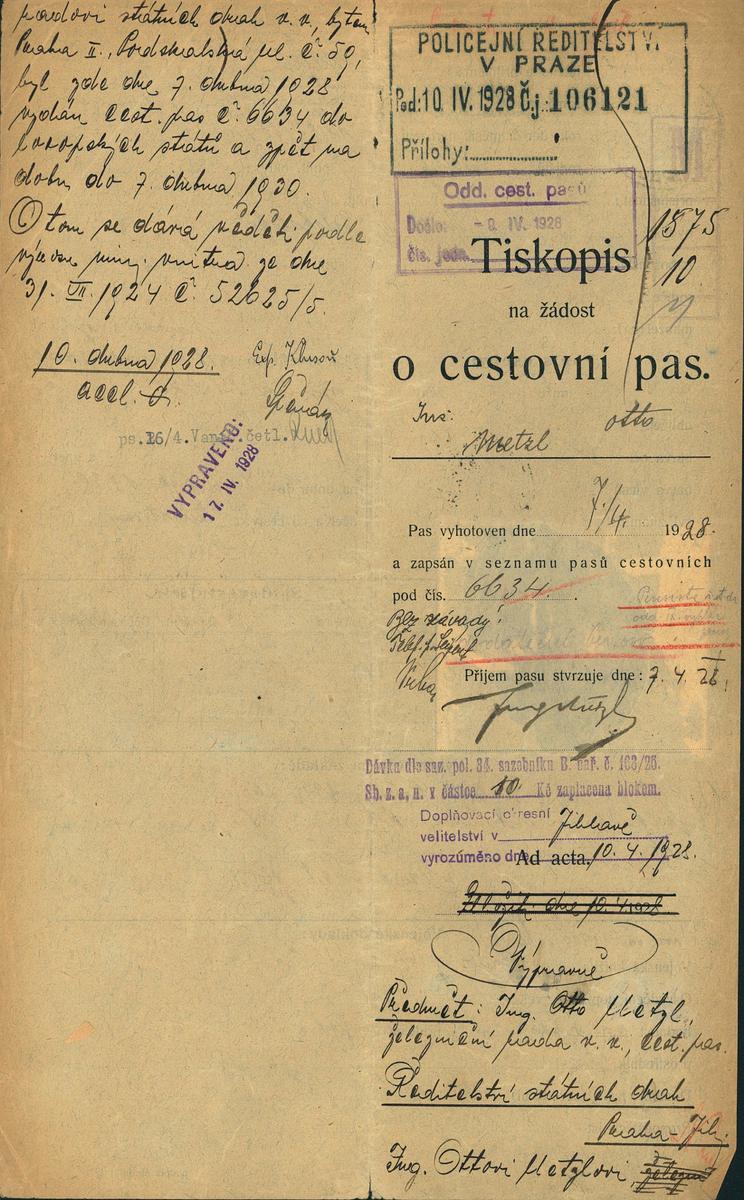 radovi státních drah v. v., bytem
Praha II., Podskalská ul. č. 50,
byl zde dne 7. dubna 1928
vydán cest. pas č. 6634 do
evropských států a zpět na
dobu do 7. dubna 1930.
O tom se dává věděti podle
výnosu min. vnitra ze dne
31. VII. 1924 č. 52625/5.
10. dubna 1928.
ps. 16/4. četl.
VYPRAVENO:
17. IV. 1928
POLICEJNÍ ŘEDITELSTVÍ
V PRAZE
Pod: 10 IV. 1928 Č.j.: 106121
Přílohy:
Odd. cest. pasů
Došlo: IV. 1928
čís. jedn.
1875
10
Tiskopis
na žádost
o cestovní pas.
Ing. Otto
Metzl
Pas vyhotoven dne 7/4. 1928.
a zapsán v seznamu pasů cestovních
pod čís. 6634.
Bez závady!
Příjem pasu stvrzuje dne: 7. 4. 28.
Dávka dle saz. pol. 34. sazebníku B. vař. č. 163/26.
Sb. z. a. n. v částce 10 Kč zaplacena blokem.
Doplňovací okresní
velitelství v Jihlavě
vyrozuměno dne 10. 4. 1928.
Ad acta,
dne 10. 4. 1928.
Výpravně
Předmět: Ing. Otto Metzl,
železniční rada v. v., cest. pas.
Ředitelství státních drah
Praha-Jih.
Ing. Ottovi Metzlovi,